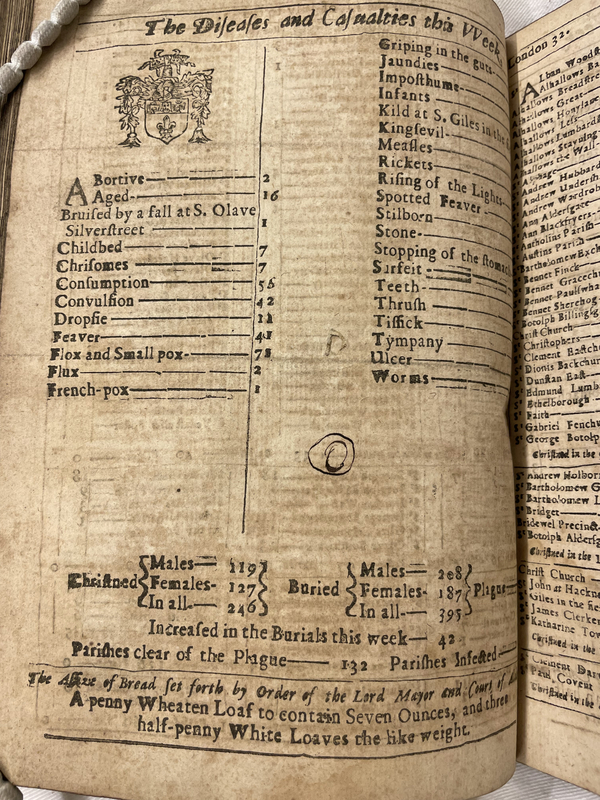 The Diseases and Casualties this VVeek
ABortive 2
Aged 16
Bruised by a fall at S. Olave
Silverstreet 1
Childbed 7
Chrisomes 7
Consumption 56
Convulsion 42
Dropsie
Feaver 41
Flox and Small pox 78
Flux 2
French-pox 1
Griping in the guts
Jaundies
Imposthume
Infants
Kild at S. Giles in the
Kingsevil
Measles
Rickets
Rising of the Lights
Spotted Feaver
Stilborn
Stone
Stopping of the stomach
Surfeit
Teeth
Thrush
Tissick
Tympany
Ulcer
Worms
Christned Males 119 Females 127 In all 246 Buried Males 208 Females 187 In all 395 Plague
Increased in the Burials this week 42
Parishes clear of the Plague 132 Parishes Infected
The Assize of Bread set forth by Order of the Lord Mayor and Court of
A penny Wheaten Loaf to contain Seven Ounces, and three
half-penny White Loaves the like weight.
London 32.
Alban Woodst
Alhallows Ba
Alhallows Breadstre
Alhallows Great
Alhallows Honylane
Alhallows Less
Alhallows Lumbard
Alhallows Staying
Alhallows the Wall
Andrew Hubbard
Andrew Undersh
Andrew Wardrob
Ann Aldersgate
Ann Blackfryers
Antholins Parish
Austins Parish
Bartholomew Exch
Bennet Finck
Bennet Gracechu
Bennet Paulswha
Bennet Sherehog
Botolph Billingsg
Christ Church
Christophers
Clement Eastch
Dionis Backchur
Dunstan East
Edmund Lumb
Ethelborough
Faith
Gabriel Fenchu
George Botolp
Christned in the
Andrew Holborn
Bartholomew G
Bartholomew L
Bridget
Bridewel Precinct
Botolph Aldersg
Christned in the
Christ Church
John at Hackne
Giles in the fie
James Clerken
Katharine Tow
Christned in the
Clement Da
Paul Covent
Christned in the